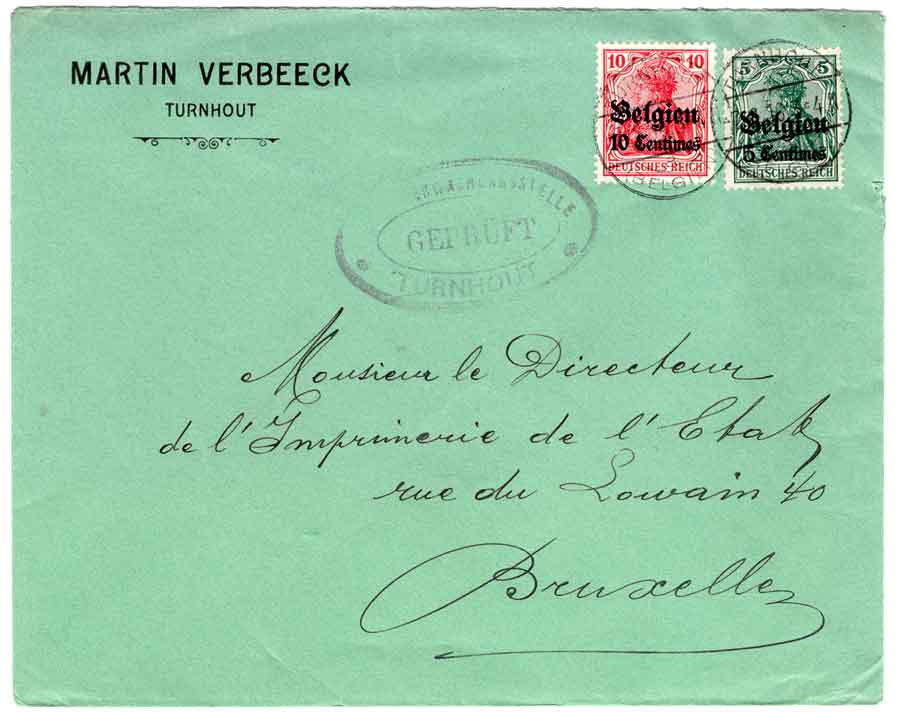 MARTIN VERBEECK
TURNHOUT
10 10
Belgien
10 Centimes
DEUTSCHES REICH
5 5
Belgien
5 Centimes
DEUTSCHES REICH
GEPRÜFT
TURNHOUT
Monsieur le Directeur
de l'Imprimerie de l'Etat
rue du Louvain 40
Bruxelles